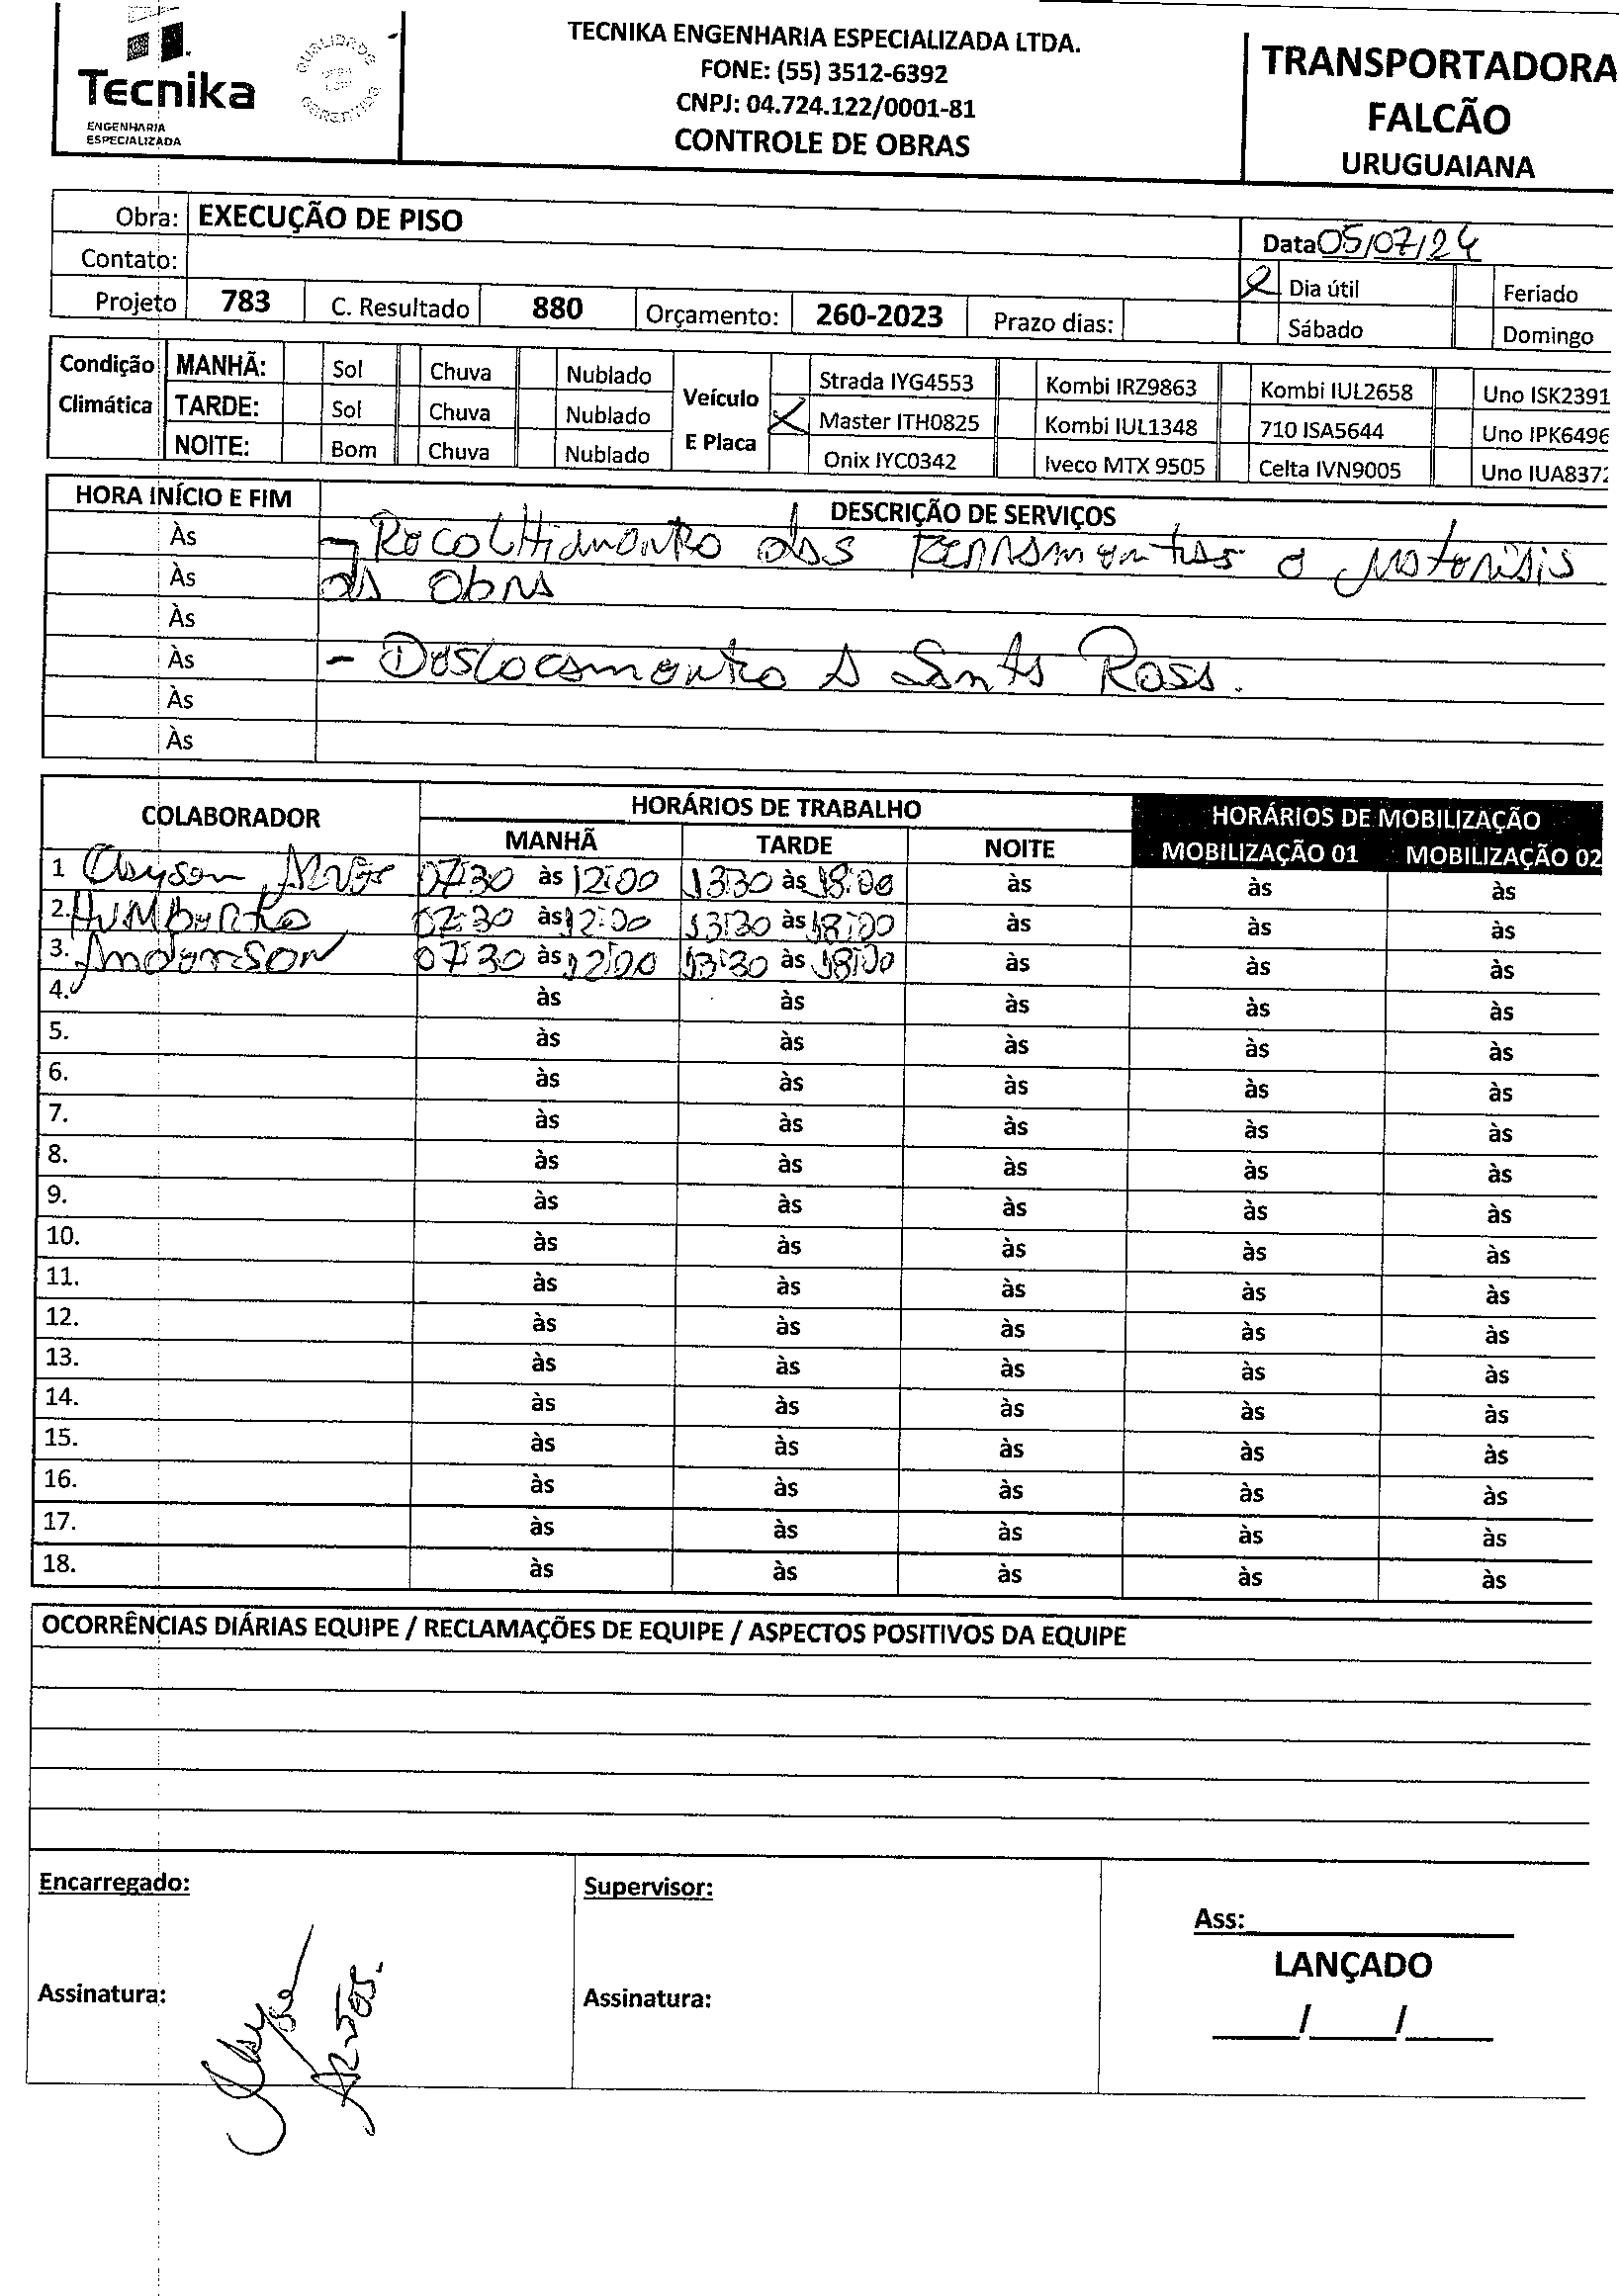 Tecnika
ENGENHARIA
ESPECIALIZADA
QUALIDADE
GARANTIDA
TECNIKA ENGENHARIA ESPECIALIZADA LTDA.
FONE: (55) 3512-6392
CNPJ: 04.724.122/0001-81
CONTROLE DE OBRAS
TRANSPORTADORA
FALCÃO
URUGUAIANA
Obra: EXECUÇÃO DE PISO
Data 05/07/24
Contato:
Dia útil Feriado
Projeto 783 C. Resultado 880 Orçamento: 260-2023 Prazo dias:
Sábado Domingo
Condição Climática
MANHÃ: Sol Chuva Nublado
TARDE: Sol Chuva Nublado
NOITE: Bom Chuva Nublado
Veículo E Placa
Strada IYG4553 Kombi IRZ9863 Kombi IUL2658 Uno ISK2391
X Master ITH0825 Kombi IUL1348 710 ISA5644 Uno IPK6496
Onix IYC0342 Iveco MTX 9505 Celta IVN9005 Uno IUA8372
HORA INÍCIO E FIM DESCRIÇÃO DE SERVIÇOS
Às - Recolhimento das ferramentas e materiais
Às da obra
Às
Às - Deslocamento a Santa Rosa.
Às
Às
COLABORADOR HORÁRIOS DE TRABALHO HORÁRIOS DE MOBILIZAÇÃO
MANHÃ TARDE NOITE MOBILIZAÇÃO 01 MOBILIZAÇÃO 02
1 Clayson Alves 07:30 às 12:00 13:30 às 18:00 às às às
2. Humberto 07:30 às 12:00 13:30 às 18:00 às às às
3. Anderson 07:30 às 12:00 13:30 às 18:00 às às às
4. às às às às às
5. às às às às às
6. às às às às às
7. às às às às às
8. às às às às às
9. às às às às às
10. às às às às às
11. às às às às às
12. às às às às às
13. às às às às às
14. às às às às às
15. às às às às às
16. às às às às às
17. às às às às às
18. às às às às às
OCORRÊNCIAS DIÁRIAS EQUIPE / RECLAMAÇÕES DE EQUIPE / ASPECTOS POSITIVOS DA EQUIPE
Encarregado:
Assinatura:
Supervisor:
Assinatura:
Ass:
LANÇADO
/ /